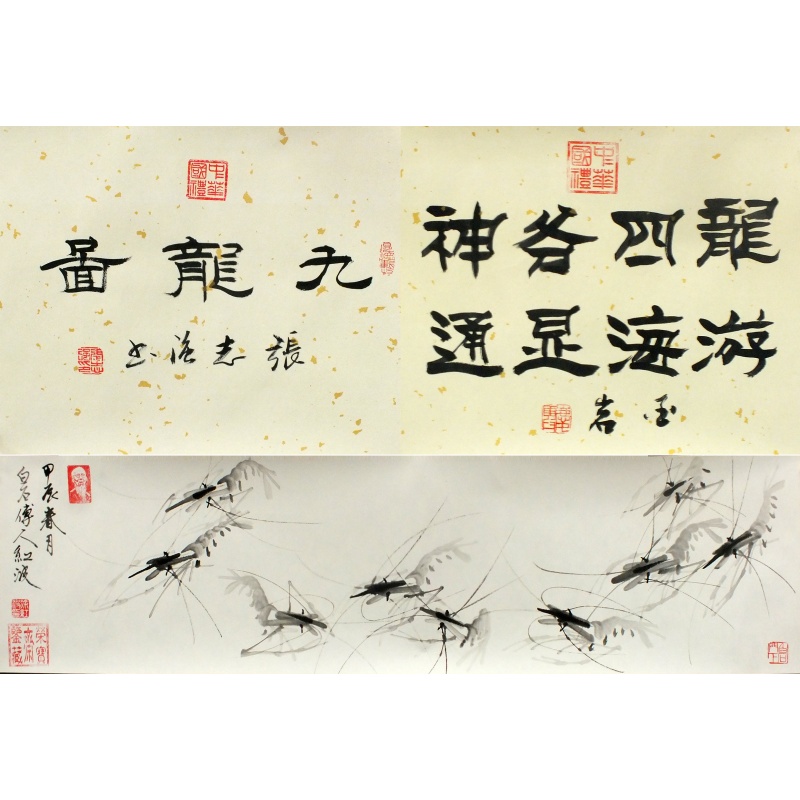 中華國禮
九龍圖
張志
中華國禮
龍游
四海
各显
神通
甲辰春月
白石傳人紅波